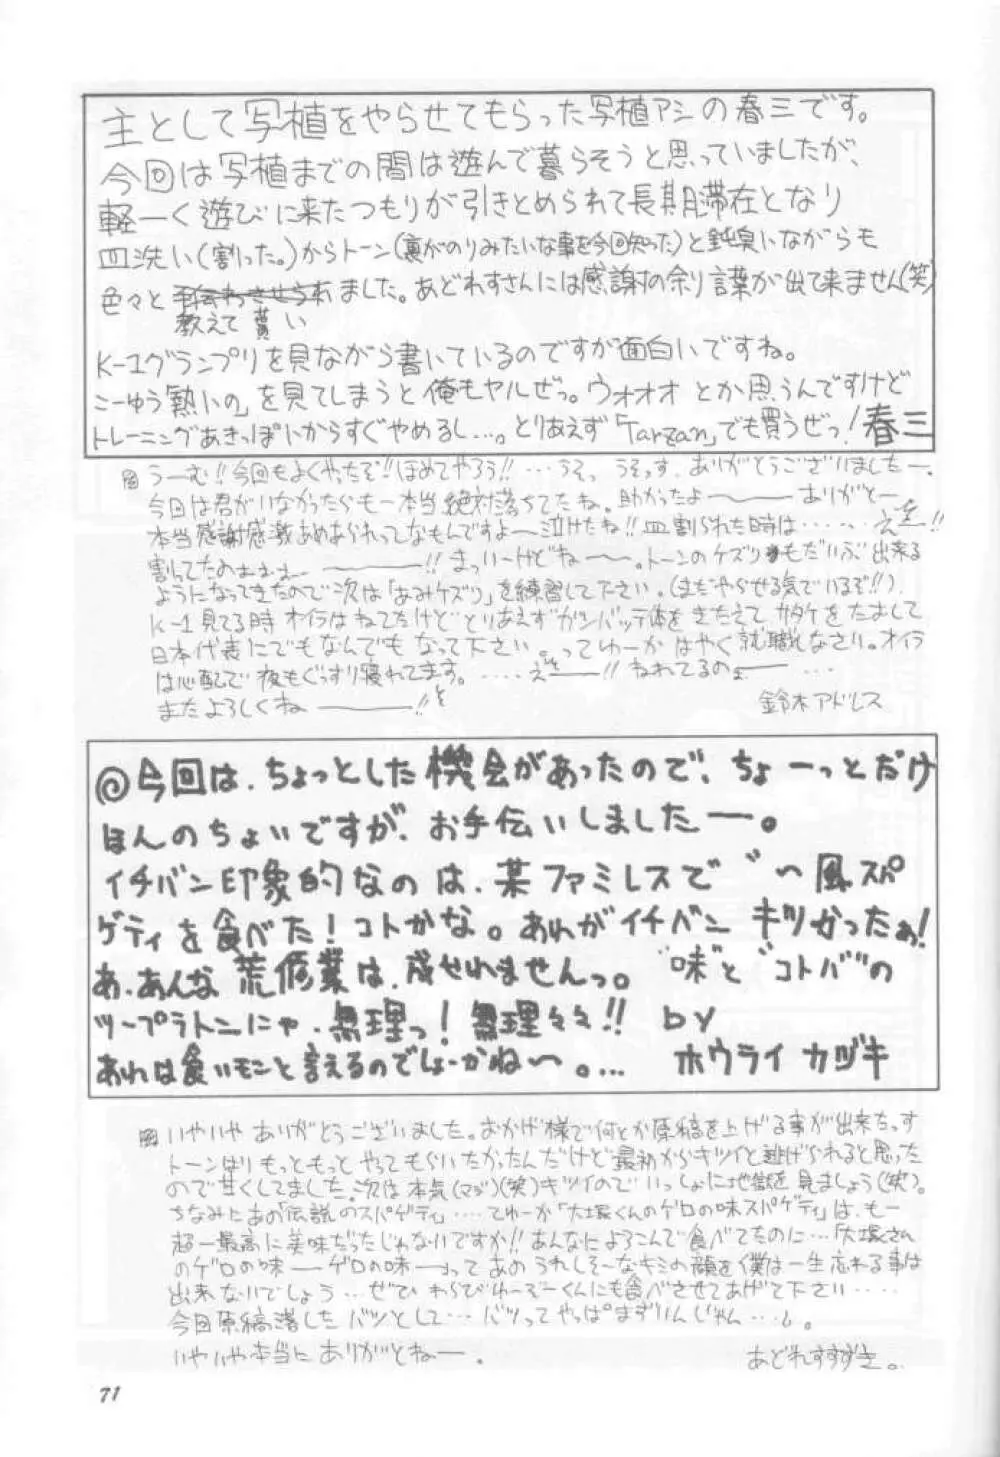 主として写植をやらせてもらった写植アシの春三です。
今回は写植までの間は遊んで暮らそうと思っていましたが、
軽ーく遊びに来たつもりが引きとめられて長期滞在となり
皿洗い(割った。)からトーン(裏がのりみたいな事を今回知った)と鈍臭いながらも
色々と
ました。あどれすさんには感謝の余り言葉が出て来ません(笑)
教えて貰い
K-1グランプリを見ながら書いているのですが面白いですね。
こーゆう「熱いの」を見てしまうと俺もヤルぜっ。ウォオオ とか思うんですけど
トレーニングあきっぽいからすぐやめるし…。とりあえず「Tarzan」でも買うぜっ! 春三
うーむ!!今回もよくやったぞ!!ほめてやろう!!…うそっ うそっす、ありがとうございましたー。
今回は君がいなかったらもー本当絶対落ちてたね。助かったよ――― ありがとー
本当感謝感激あめあられってなもんですよ〜泣けたね!!皿割られた時は……
割ってたのぉぉぉ―――!!まっいーけどねー〜。トーンのケズリもだいぶ出来る
ようになってきたので次は「あみケズリ」を練習して下さい。(まだやらせる気でいるぞ!!)
K-1見てる時オイラはねてたけどとりあえずガンバッテ体をきたえて サタケをたまして
日本代表にでもなんでもなって下さい。ってゆーか はやく就職しなさい。オイラ
は心配で夜もぐっすり寝れてます。……え――!!ねれてるのぉ―― …
またよろしくね ―――!!
鈴木アドレス
@今回は、ちょっとした機会があったので、ちょーっとだけ
ほんのちょいですが、お手伝いしましたー。
イチバン印象的なのは、某ファミレスで゛〜風スパ
ゲティを食べた!コトかな。あれがイチバン キツかったぁ!
あ、あんな荒修業は、成せれませんっ。"味"と"コトバ"の
ツープラトンにゃ、無理っ!無理々々!! by
あれは食いモンと言えるのでしょーかね〜。… ホウライ カヅキ
いやいや ありがとうございました。おかげ様で何とか原稿を上げる事が出来たっす
トーンはりもっともっと やってもらいたかったんだけど最初からキツイと逃げられると思った
ので甘くしてました。次は本気(マジ)(笑)キツイのでいっしょに地獄を見ましょう(笑)。
ちなみにあの「伝説のスパゲティ」……てゆーか「大塚くんのゲロの味スパゲティ」は、もー
超ー最高に美味だったじゃないですか!!あんなによろこんで食べてたのに…「大塚さん
のゲロの味―ゲロの味―」ってあのうれしそーなキミの顔を僕は一生忘れる事は
出来ないでしょう…ぜひ わらびゆーぞーくんにも食べさせてあげて下さい……
今回原稿落したバツとして…バツってやっぱまずいんじゃん…。
いやいや本当に ありがとねー。
あどれすすずき。
71